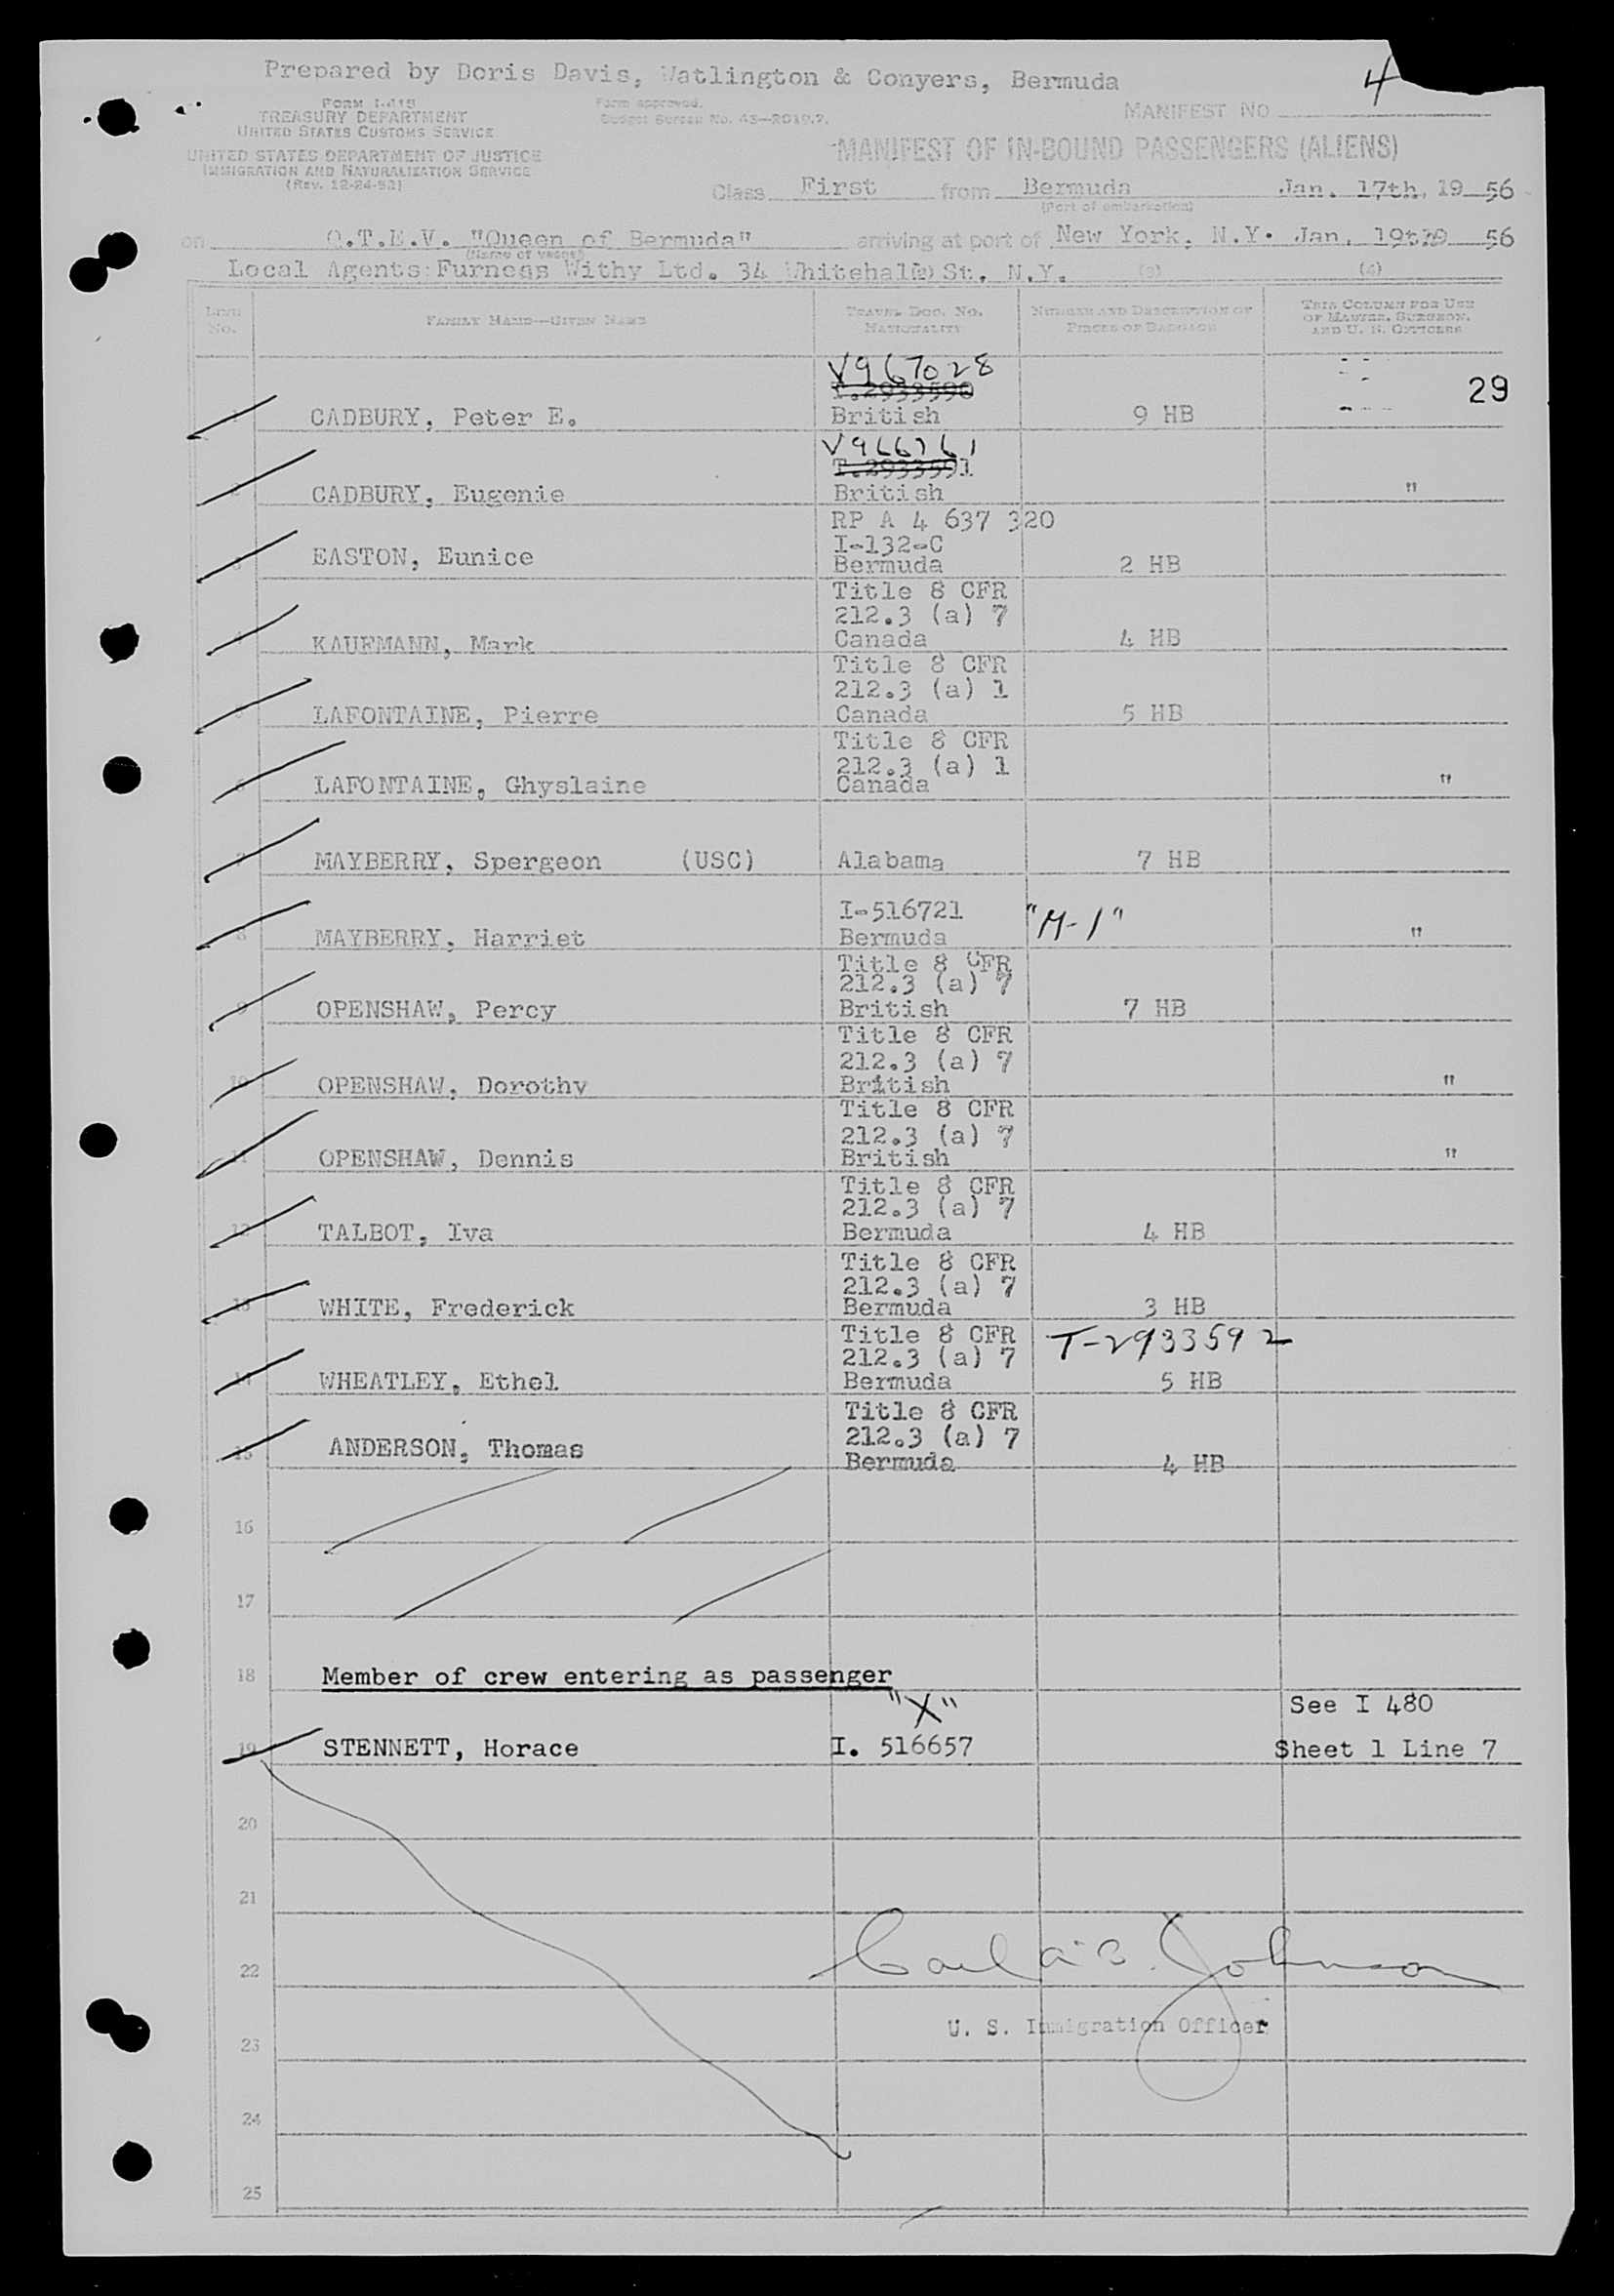 Prepared by Doris Davis, Watlington & Conyers, Bermuda
4
FORM I-418
TREASURY DEPARTMENT
UNITED STATES CUSTOMS SERVICE
UNITED STATES DEPARTMENT OF JUSTICE
IMMIGRATION AND NATURALIZATION SERVICE
(Rev. 12-24-52)
Form approved.
Budget Bureau No. 43—R019.2.
MANIFEST NO
MANIFEST OF IN-BOUND PASSENGERS (ALIENS)
Class First from Bermuda Jan. 17th, 19 56
(Port of embarkation)
on Q.T.E.V. "Queen of Bermuda" arriving at port of New York, N.Y. Jan. 19th 56
(Name of vessel)
Local Agents: Furness Withy Ltd. 34 Whitehall St. N.Y. (3) (4)
LINE No. FAMILY NAME—GIVEN NAME TRAVEL DOC. NO. NATIONALITY NUMBER AND DESCRIPTION OF PIECES OF BAGGAGE THIS COLUMN FOR USE OF MASTER, SURGEON, AND U. S. OFFICERS
V967028
T.2933590
29
1 CADBURY, Peter E. British 9 HB
V966761
T.2933591
2 CADBURY, Eugenie British "
RP A 4 637 320
I-132-C
3 EASTON, Eunice Bermuda 2 HB
Title 8 CFR
212.3 (a) 7
4 KAUFMANN, Mark Canada 4 HB
Title 8 CFR
212.3 (a) 1
5 LAFONTAINE, Pierre Canada 5 HB
Title 8 CFR
212.3 (a) 1
6 LAFONTAINE, Ghyslaine Canada "
7 MAYBERRY, Spergeon (USC) Alabama 7 HB
I-516721 "M-1"
8 MAYBERRY, Harriet Bermuda "
Title 8 CFR
212.3 (a) 7
9 OPENSHAW, Percy British 7 HB
Title 8 CFR
212.3 (a) 7
10 OPENSHAW, Dorothy British "
Title 8 CFR
212.3 (a) 7
11 OPENSHAW, Dennis British "
Title 8 CFR
212.3 (a) 7
12 TALBOT, Iva Bermuda 4 HB
Title 8 CFR
212.3 (a) 7
13 WHITE, Frederick Bermuda 3 HB
Title 8 CFR T-2933592
212.3 (a) 7
14 WHEATLEY, Ethel Bermuda 5 HB
Title 8 CFR
212.3 (a) 7
15 ANDERSON, Thomas Bermuda 4 HB
16
17
18 Member of crew entering as passenger
"X" See I 480
19 STENNETT, Horace I. 516657 Sheet 1 Line 7
20
21
22 Carl A. Johnson
23 U. S. Immigration Officer
24
25